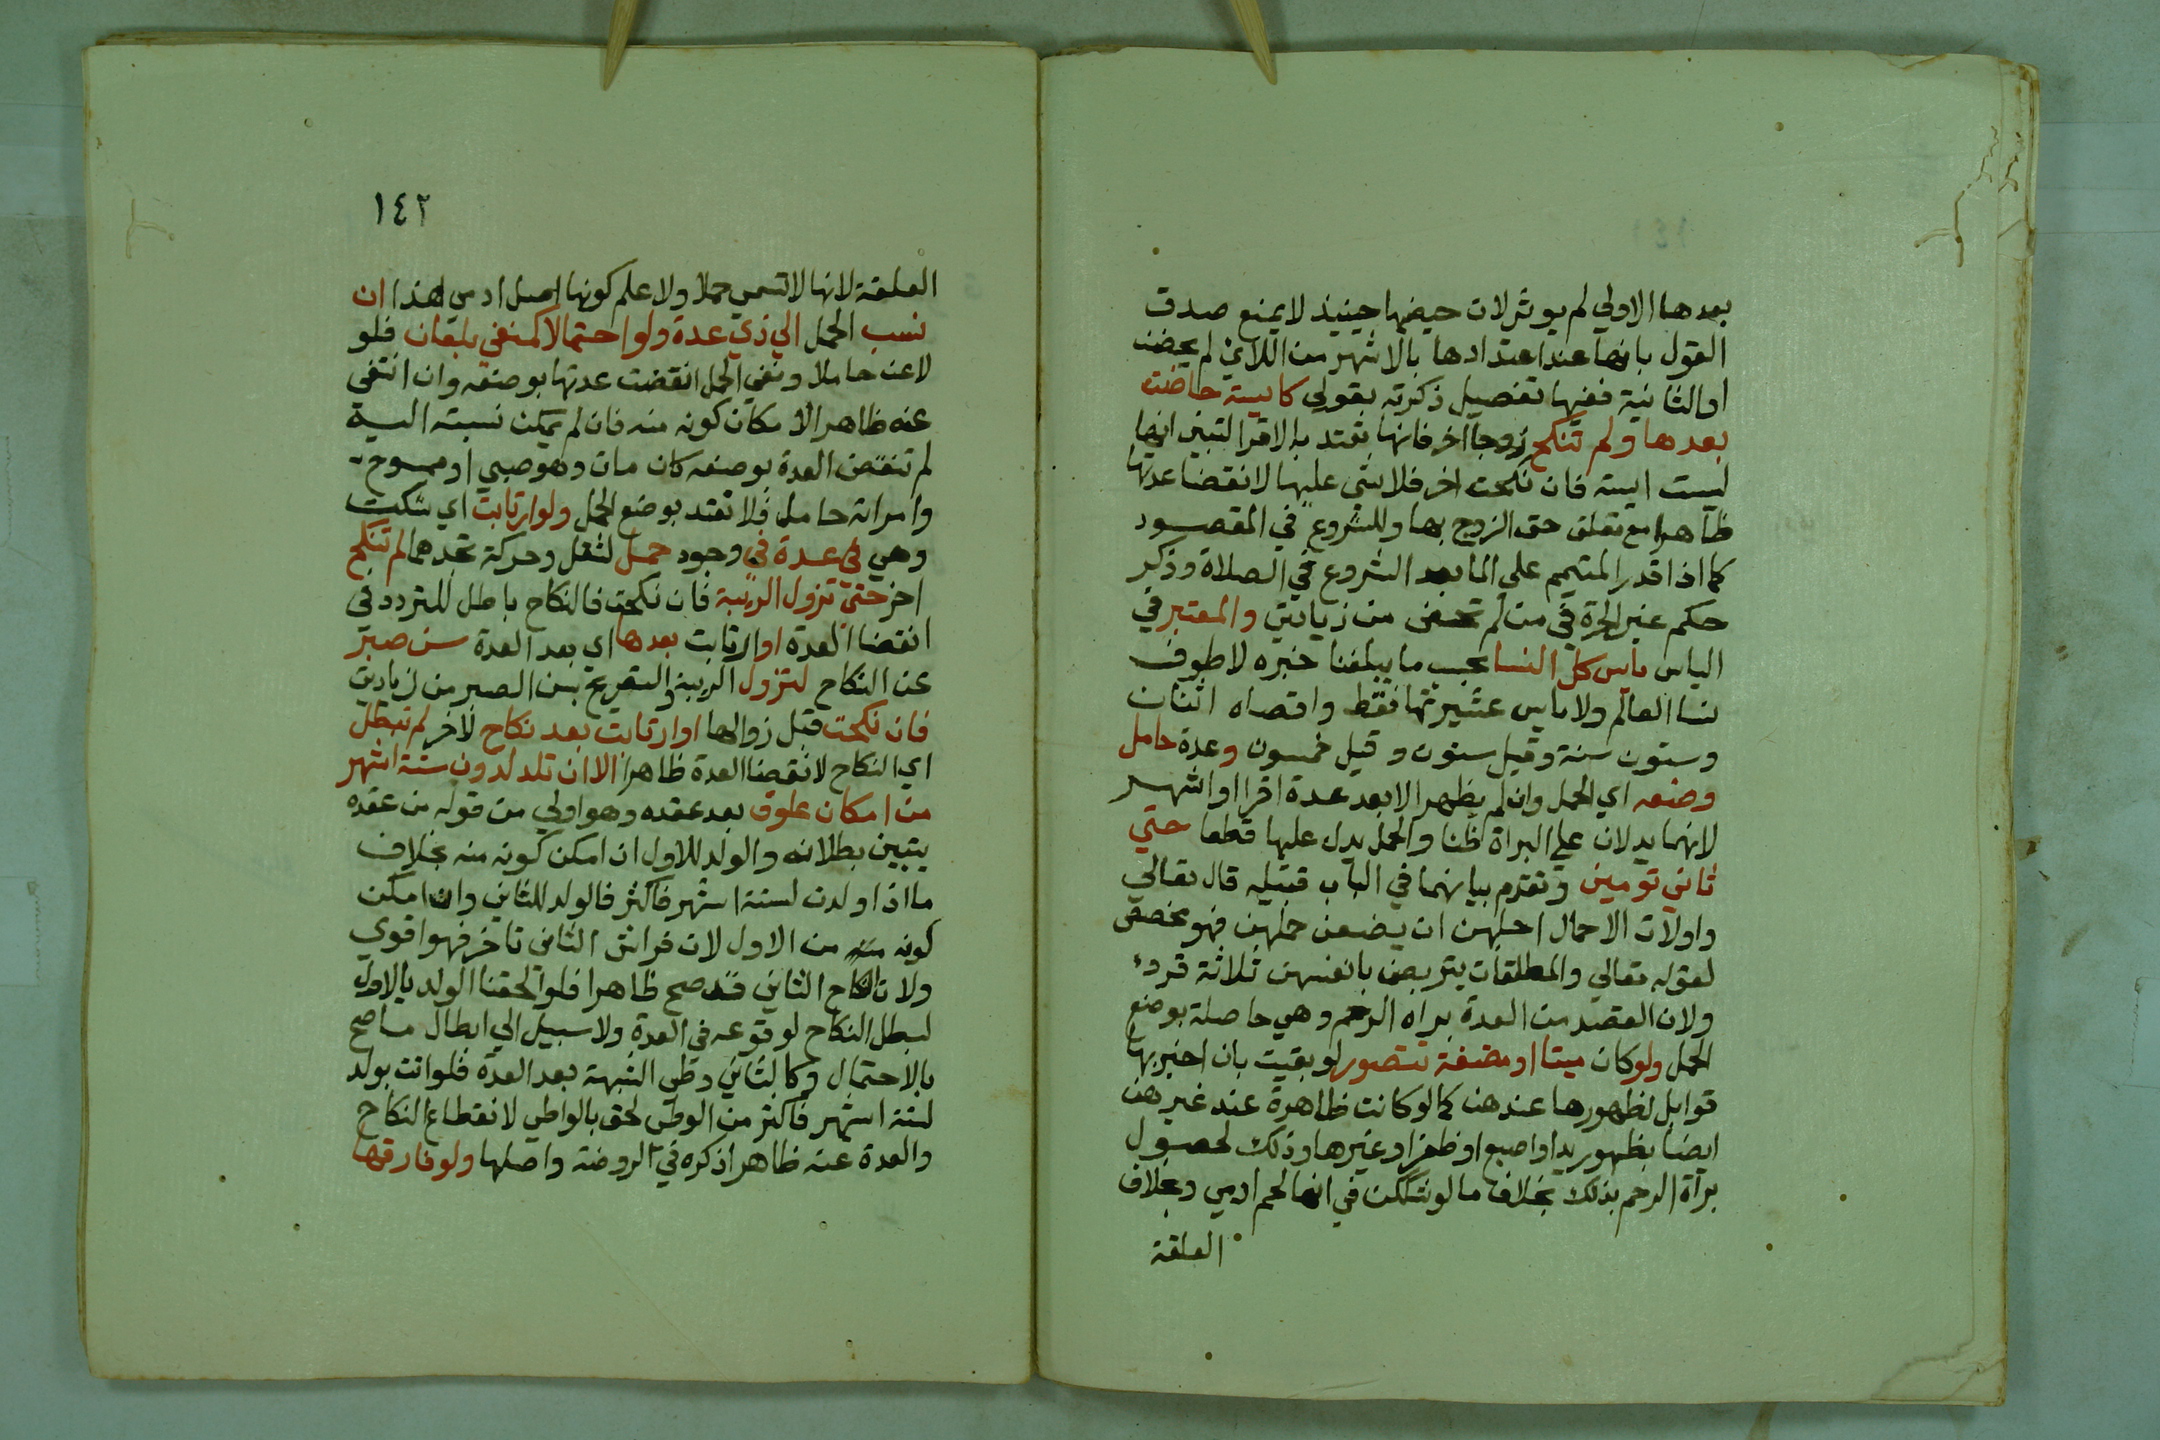 بعدها الاولي لم يوثر لان حيضها حينيذ لا يمنع صدق
القول بانها عند اعتدادها بالاشهر من اللائ لم يحضن
او الثانية ففيها تفصيل ذكرته بقولي كايسة حاضت
بعدها ولم تنكح زوجا اخر فانها تعتد بالاقرا لتبين انها
ليست ايسة فان نكحت اخر فلا شي عليها لانقضا عدتها
ظاهرا مع تعلق حق الزوج بها وللشروع في المقصود
كما اذا قدر المتيمم علي الما بعد الشروع في الصلاة وذكر
حكم غير الحرة في من لم تحض من زيادتي والمعتبر في
الياس ياس كل النسا بحسب ما يبلغنا خبره لا طوف
نسا العالم ولا ياس عشيرتها فقط واقصاه اثنان
وستون سنة وقيل ستون وقيل خمسون وعدة حامل
وضعه اي الحمل وان لم يظهر الا بعد عدة اقرا او اشهر
لانهما يدلان علي البراة ظنا والحمل يدل عليها قطعا حتي
ثاني تومين وتقدم بيانهما في الباب قبيله قال تعالي
واولات الاحمال اجلهن ان يضعن حملهن فهو مخصص
لقوله تعالي والمطلقات يتربصن بانفسهن ثلاثة قروء
ولان القصد من العدة براة الرحم وهي حاصلة بوضع
الحمل ولو كان ميتا او مضغة تتصور لو بقيت بان اخبر بها
قوابل لظهورها عندهن كما لو كانت ظاهرة عند غيرهن
ايضا بظهور يد او اصبع او ظفر او غيرها وذلك لحصول
برآة الرحم بذلك بخلاف ما لو شككن في انها لحم ادمي وبخلاف
العلقة
١٤٢
العلقة لانها لا تسمي حملا ولا علم كونها اصل ادمي هذا ان
نسب الحمل الي ذي عدة ولو احتمالا كمنفي بلعان فلو
لاعن حاملا ونفي الحمل انقضت عدتها بوضعه وان انتفي
عنه ظاهرا لامكان كونه منه فان لم يمكن نسبته اليه
لم تنقض العدة بوضعه كان مات وهو صبي او ممسوح
وامراته حامل فلا تعتد بوضع الحمل ولو ارتابت اي شكت
وهي في عدة في وجود حمل لثقل وحركة تجدهما لم تنكح
اخر حتي تزول الريبة فان نكحت فالنكاح باطل للتردد في
انقضا العدة او ارتابت بعدها اي بعد العدة سن صبر
عن النكاح لتزول الريبة والتصريح بسن الصبر من زيادتي
فان نكحت قبل زوالها او ارتابت بعد نكاح لآخر لم تبطل
اي النكاح لانقضا العدة ظاهرا الا ان تلد لدون ستة اشهر
من امكان علوق بعد عقده وهو اولي من قوله من عقده
يتبين بطلانه والولد للاول ان امكن كونه منه بخلاف
ما اذا ولدت لستة اشهر فاكثر فالولد للثاني وان امكن
كونه من الاول لان فراش الثاني تاخر فهو اقوي
ولان النكاح الثاني قد صح ظاهرا فلو الحقنا الولد بالاول
لبطل النكاح لوقوعه في العدة ولا سبيل الي ابطال ما صح
بالاحتمال وكالثاني وطي الشبهة بعد العدة فلو اتت بولد
لستة اشهر فاكثر من الوطي لحق بالواطي لانقطاع النكاح
والعدة عنه ظاهرا ذكره في الروضة واصلها ولو فارقها